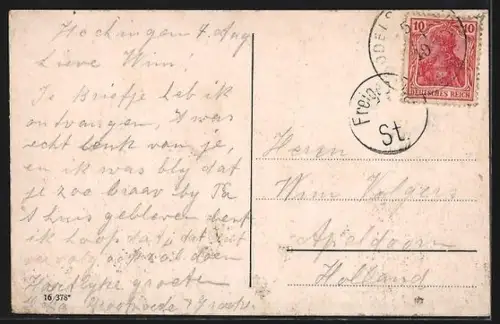 Hochingen 4. Aug
Lieve Wim!
Je Briefje heb ik
ontvangen, 't was
echt leuk van je,
en ik was bly dat
je zoo braav by Pa
thuis gebleven bent
ik hoop dat je dat
vervolg ook zal doen
Hartlyke groeten
16 378*
10 10
DEUTSCHES REICH
Freige
St.
Herrn
Wim Volgers
Apeldoorn
Holland